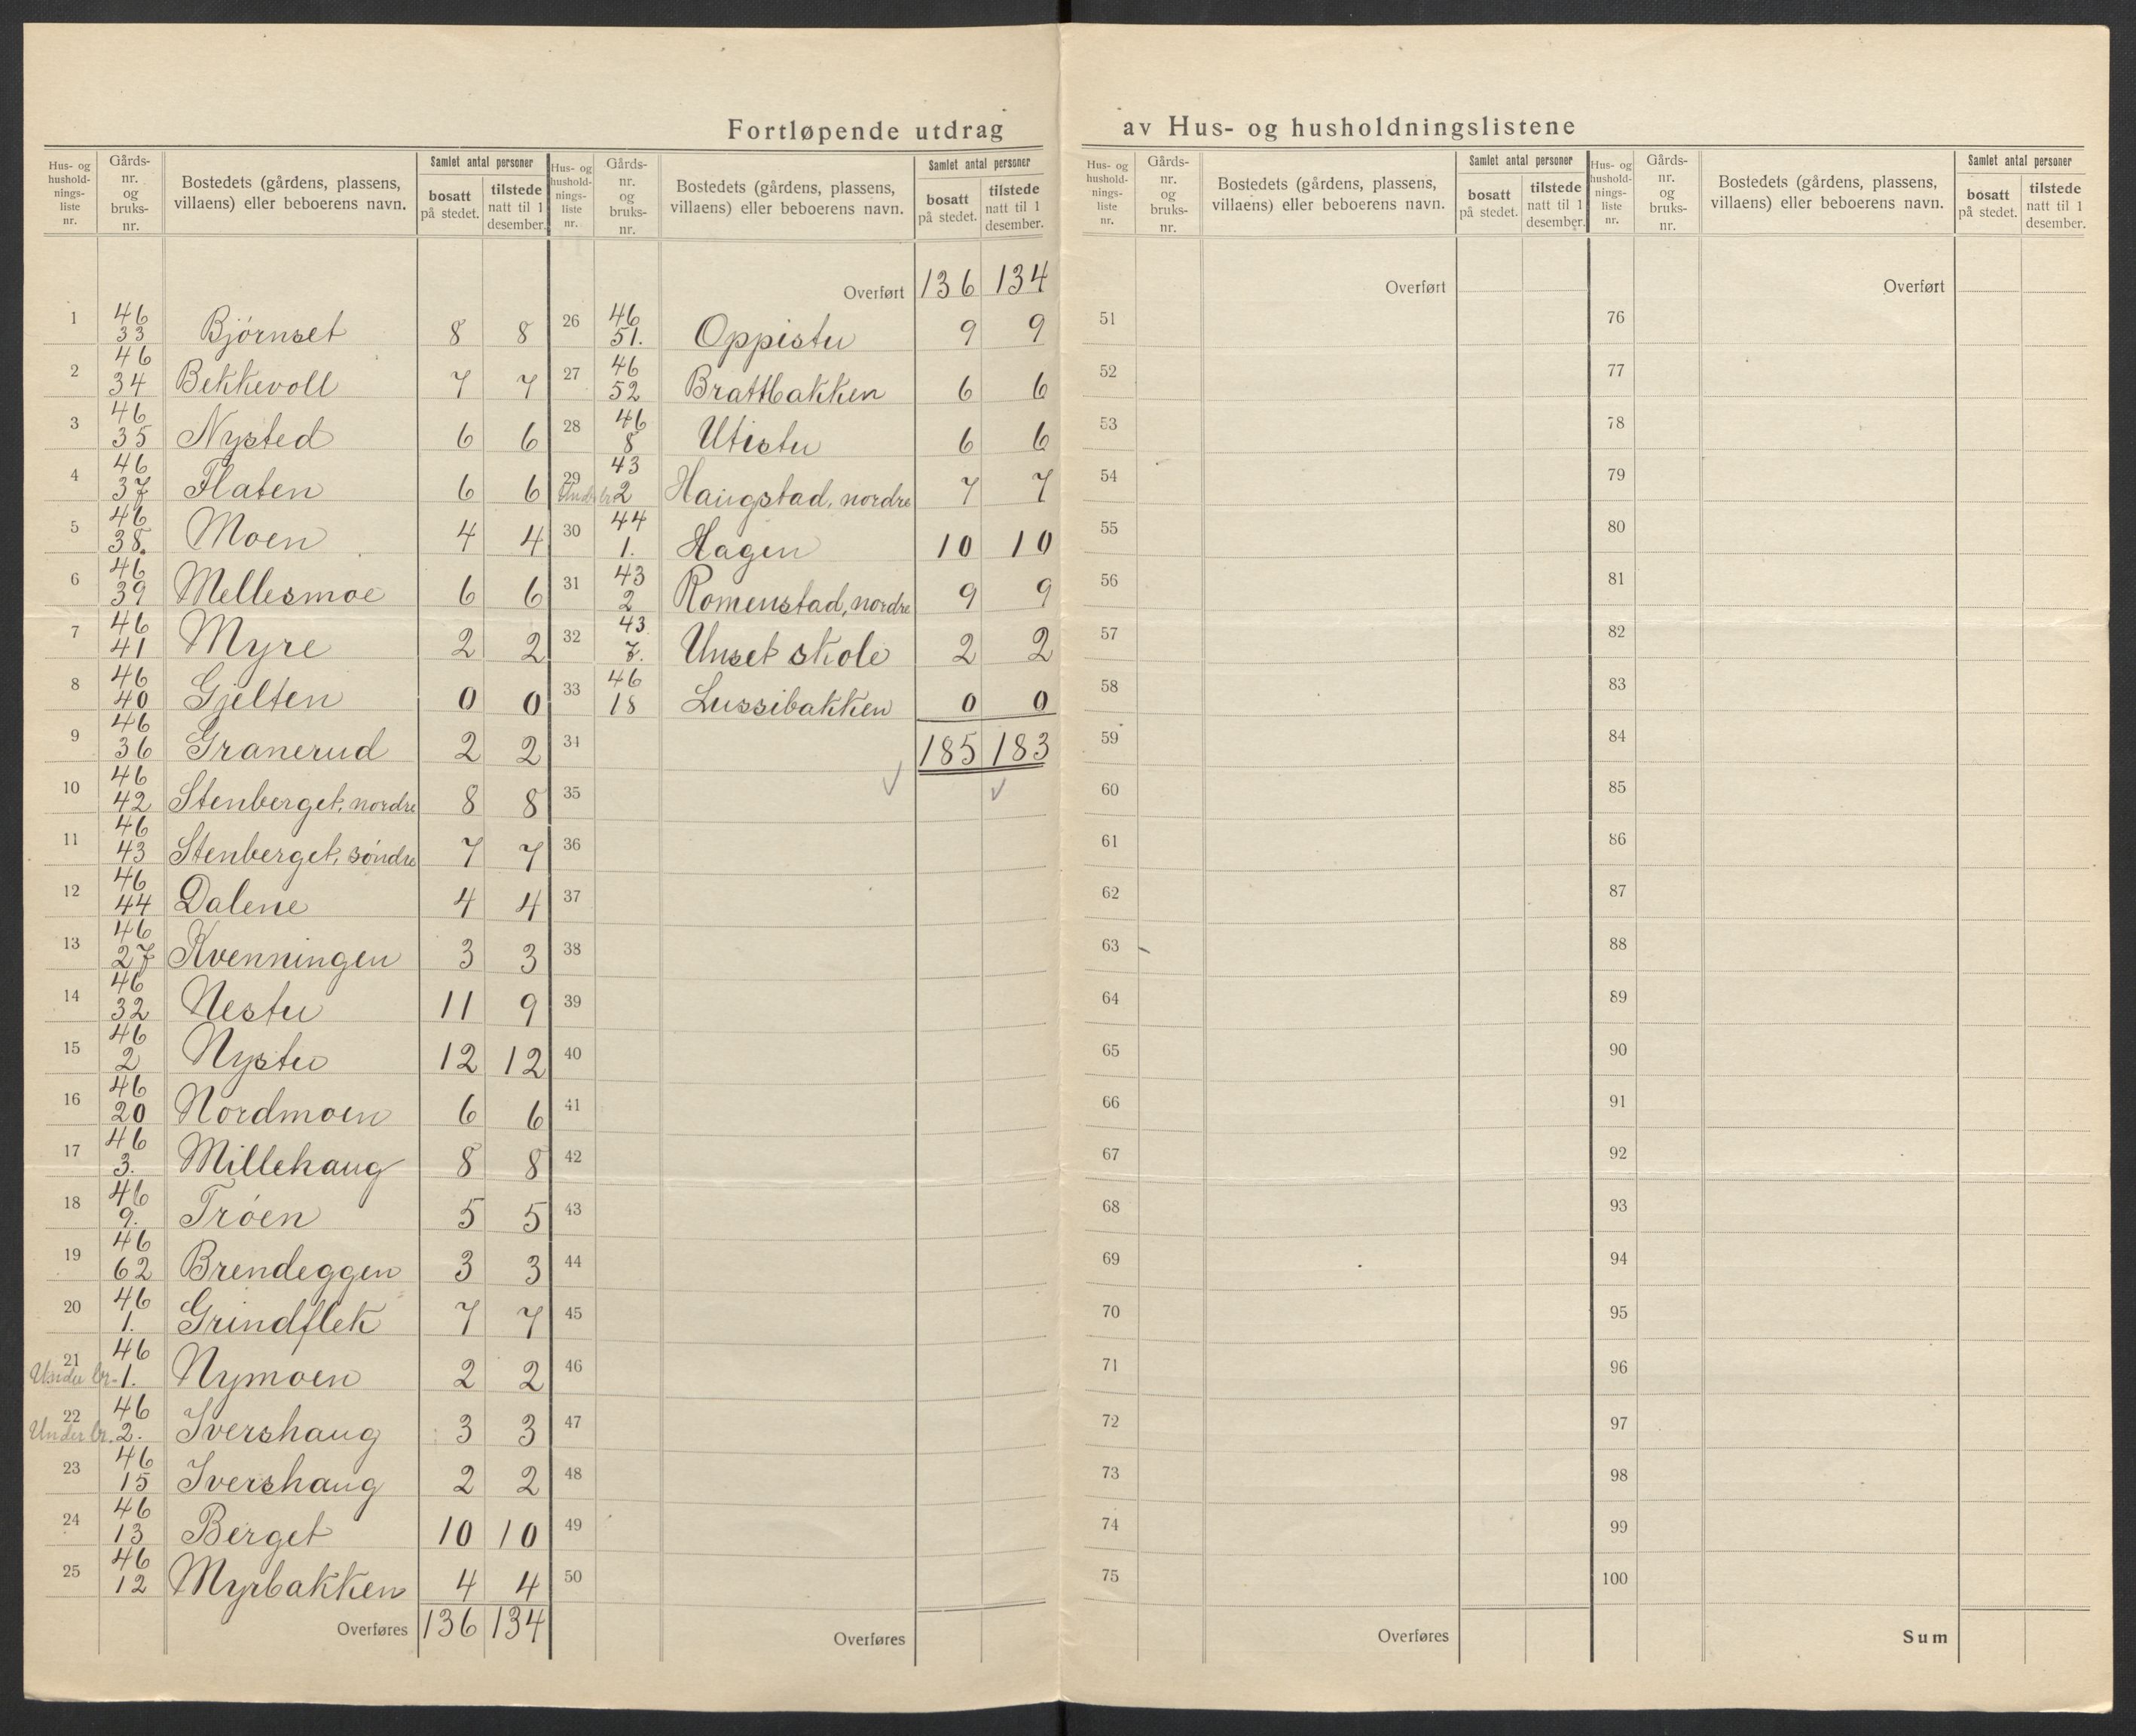 Fortløpende utdrag av Hus- og husholdningslistene
Hus- og hushold-nings-liste nr. | Gårds-nr. og bruks-nr. | Bostedets (gårdens, plassens, villaens) eller beboerens navn. | Samlet antal personer | bosatt på stedet. | tilstede natt til 1 desember.
1 46 33 Bjørnset 8 8
2 46 34 Bekkevoll 7 7
3 46 35 Nysted 6 6
4 46 37 Flaten 6 6
5 46 38. Moen 4 4
6 46 39 Mellesmoe 6 6
7 46 41 Myre 2 2
8 46 40 Gjelten 0 0
9 46 36 Granerud 2 2
10 46 42 Stenberget, nordre 8 8
11 46 43 Stenberget, söndre 7 7
12 46 44 Dalene 4 4
13 46 27 Kvenningen 3 3
14 46 32 Nestu 11 9
15 46 2 Nystu 12 12
16 46 20 Nordmoen 6 6
17 46 3. Millehaug 8 8
18 46 9. Tröen 5 5
19 46 62 Brendeggen 3 3
20 46 1. Grindflek 7 7
21 Under br. 46 1. Nymoen 2 2
22 Under br. 46 2. Ivershaug 3 3
23 46 15 Ivershaug 2 2
24 46 13 Berget 10 10
25 46 12 Myrbakken 4 4
Overføres 136 134
Hus- og hushold-nings-liste nr. | Gårds-nr. og bruks-nr. | Bostedets (gårdens, plassens, villaens) eller beboerens navn. | Samlet antal personer | bosatt på stedet. | tilstede natt til 1 desember.
Overført 136 134
26 46 51. Oppistu 9 9
27 46 52 Brattbakken 6 6
28 46 8 Utistu 6 6
29 Under br. 43 2 Haugstad, nordre 7 7
30 44 1. Hagen 10 10
31 43 2 Romenstad, nordre 9 9
32 43 7. Unset skole 2 2
33 46 18 Lussibakken 0 0
34 185 183
35
36
37
38
39
40
41
42
43
44
45
46
47
48
49
50
Overføres
Hus- og hushold-nings-liste nr. | Gårds-nr. og bruks-nr. | Bostedets (gårdens, plassens, villaens) eller beboerens navn. | Samlet antal personer | bosatt på stedet. | tilstede natt til 1 desember.
Overført
51
52
53
54
55
56
57
58
59
60
61
62
63
64
65
66
67
68
69
70
71
72
73
74
75
Overføres
Hus- og hushold-nings-liste nr. | Gårds-nr. og bruks-nr. | Bostedets (gårdens, plassens, villaens) eller beboerens navn. | Samlet antal personer | bosatt på stedet. | tilstede natt til 1 desember.
Overført
76
77
78
79
80
81
82
83
84
85
86
87
88
89
90
91
92
93
94
95
96
97
98
99
100
Sum